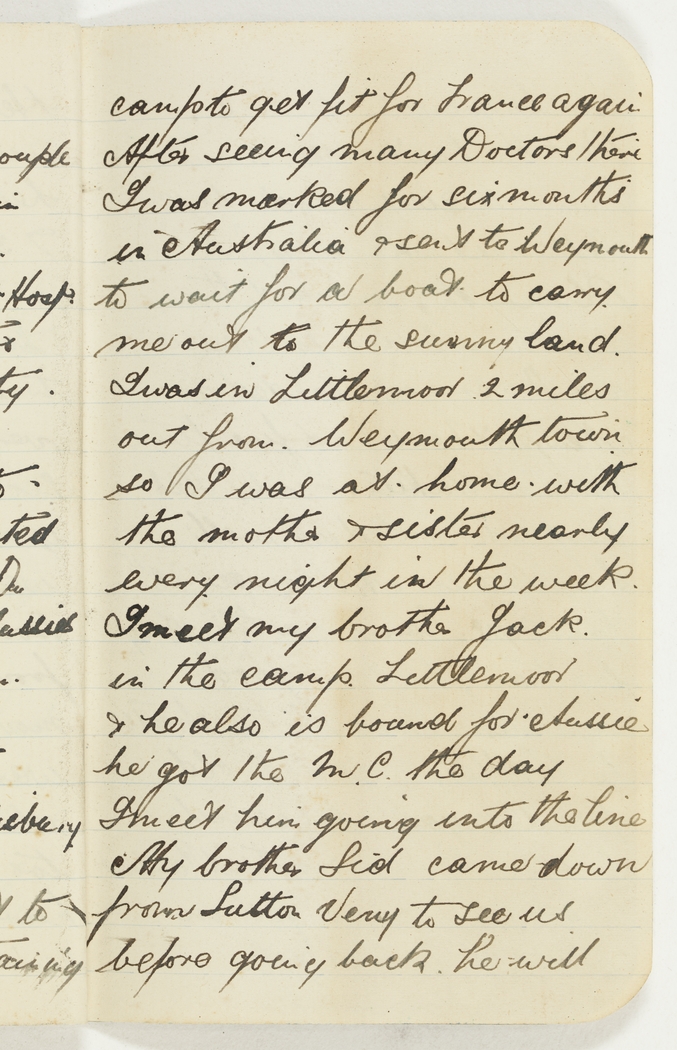 camp to get fit for France again
After seeing many Doctors there
I was marked for six months
in Australia & sent to Weymouth
to wait for a boat to carry
me out to the sunny land.
I was in Littlemoor 2 miles
out from. Weymouth town
so I was at. home. with
the mother & sister nearly
every night in the week.
I meet my brother Jack.
in the camp. Littlemoor
& he also is bound for Aussie
he got the M.C. the day
I meet him going into the line
My brother Sid came down
from Sutton Veny to see us
before going back. he will
ouple
in
Hosp.
ty.
ted
Dr
Aussies
sebury
to
taining